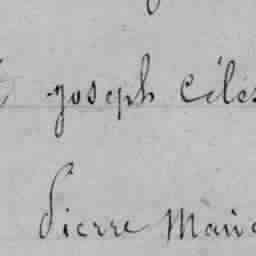 joseph Céles
Pierre Marie